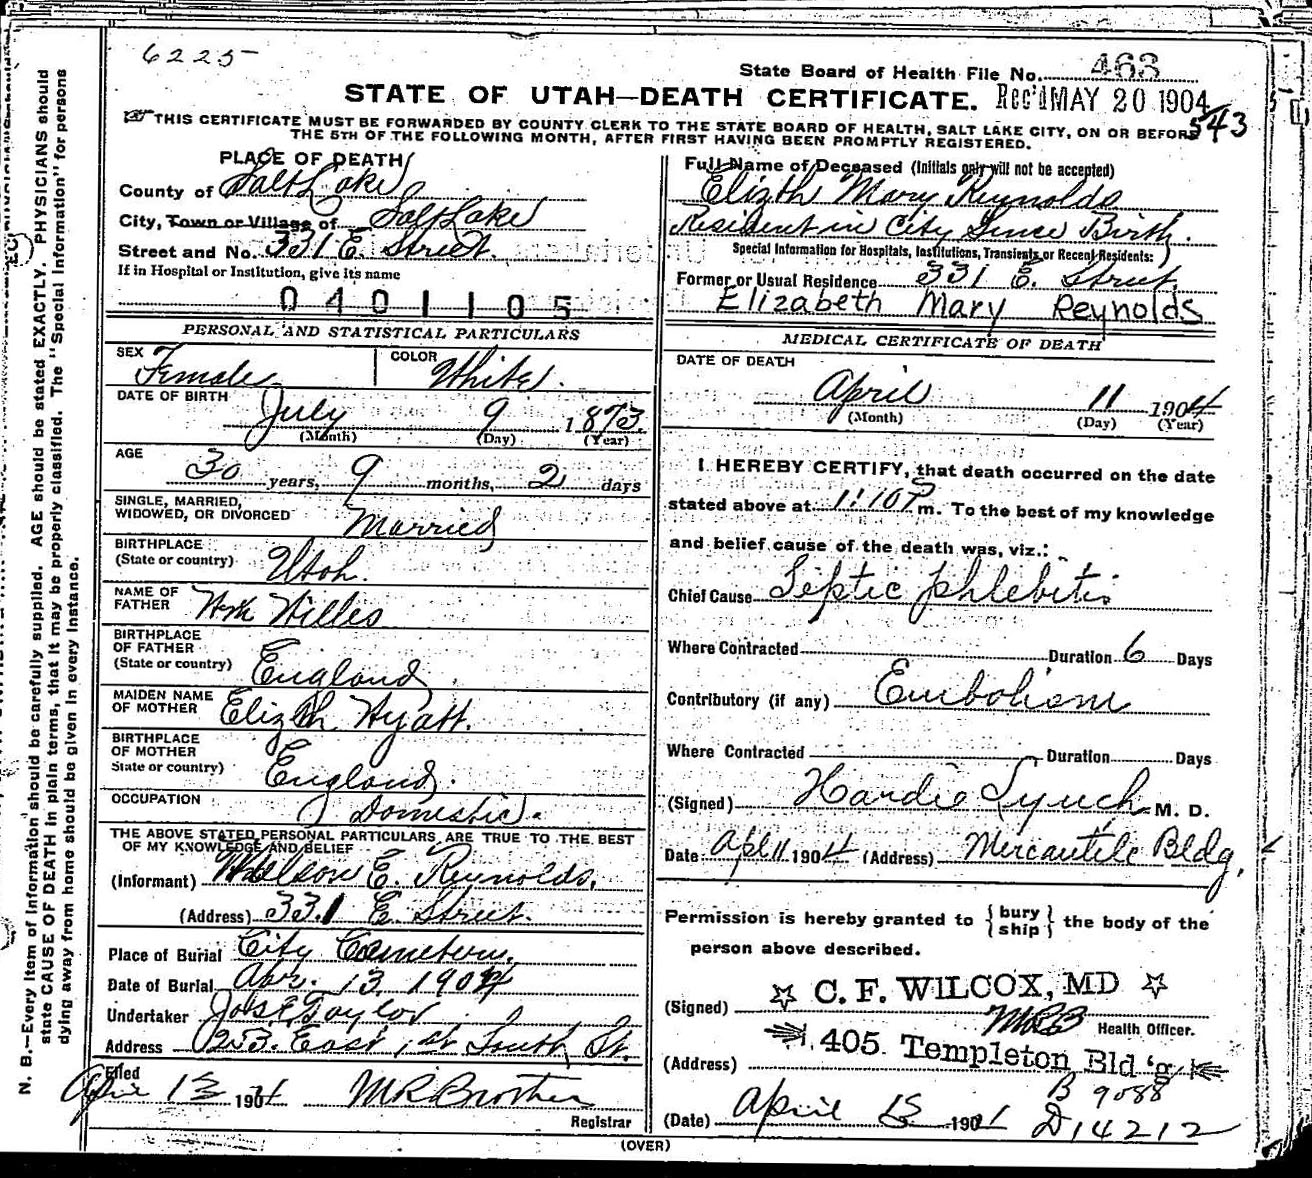 6225
State Board of Health File No. 463
STATE OF UTAH—DEATH CERTIFICATE. Rec'd MAY 20 1904
543
THIS CERTIFICATE MUST BE FORWARDED BY COUNTY CLERK TO THE STATE BOARD OF HEALTH, SALT LAKE CITY, ON OR BEFORE
THE 5TH OF THE FOLLOWING MONTH, AFTER FIRST HAVING BEEN PROMPTLY REGISTERED.
PLACE OF DEATH
County of Salt Lake
City, Town or Village of Salt Lake
Street and No. 331 E. Street.
If in Hospital or Institution, give its name
0401105
PERSONAL AND STATISTICAL PARTICULARS
SEX Female COLOR White.
DATE OF BIRTH July 9 1873.
(Month) (Day) (Year)
AGE 30 years, 9 months, 2 days
SINGLE, MARRIED,
WIDOWED, OR DIVORCED Married
BIRTHPLACE
(State or country) Utah.
NAME OF
FATHER Wm Willes
BIRTHPLACE
OF FATHER
(State or country) England.
MAIDEN NAME
OF MOTHER Elizth Hyatt.
BIRTHPLACE
OF MOTHER
State or country) England.
OCCUPATION Domestic.
THE ABOVE STATED PERSONAL PARTICULARS ARE TRUE TO THE BEST
OF MY KNOWLEDGE AND BELIEF
(Informant) E. Reynolds.
(Address) 331 E. Street.
Place of Burial City Cemetery.
Date of Burial Apr. 13 1904
Undertaker Jos E Taylor
Address 253 East 1st South St.
Filed
April 13 1904 M R Brothers
Registrar
Full Name of Deceased (Initials only will not be accepted)
Elizth Mary Reynolds
Resident in City Since Birth.
Special Information for Hospitals, Institutions, Transients or Recent Residents: )
Former or Usual Residence 331 E. Street.
Elizabeth Mary Reynolds
MEDICAL CERTIFICATE OF DEATH
DATE OF DEATH
April 11 1904
(Month) (Day) (Year)
I HEREBY CERTIFY, that death occurred on the date
stated above at 1:10 P m. To the best of my knowledge
and belief cause of the death was, viz.:
Chief Cause Septic phlebitis
Where Contracted Duration 6 Days
Contributory (if any) Embolism
Where Contracted Duration Days
(Signed) Hardie Lynch M. D.
Date Apl 11 1904 (Address) Mercantile Bldg.
Permission is hereby granted to { bury ship } the body of the
person above described.
(Signed) ☆ C. F. WILCOX, MD ☆
MRB Health Officer.
(Address) 405 Templeton Bld'g
B 9088
(Date) April 13 1904 D14212
(OVER)
N. B.—Every item of information should be carefully supplied. AGE should be stated EXACTLY. PHYSICIANS should
state CAUSE OF DEATH in plain terms, that it may be properly classified. The "Special Information" for persons
dying away from home should be given in every instance.